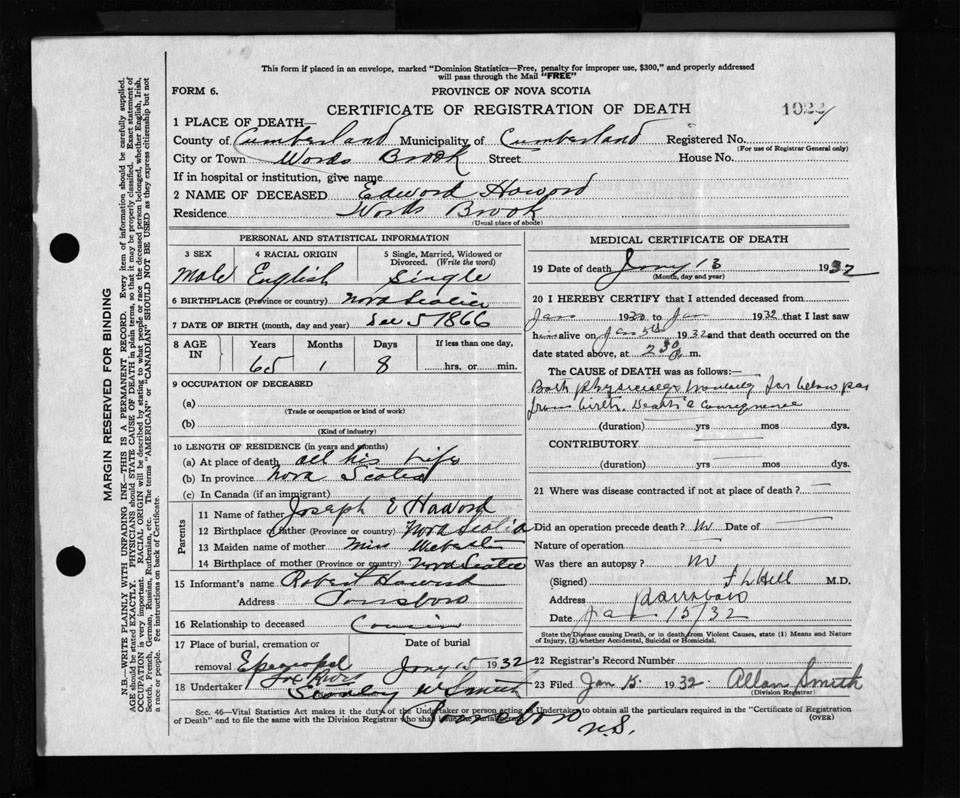 This form if placed in an envelope, marked "Dominion Statistics—Free, penalty for improper use, $300," and properly addressed
will pass through the Mail "FREE"
FORM 6.
PROVINCE OF NOVA SCOTIA
CERTIFICATE OF REGISTRATION OF DEATH
1 PLACE OF DEATH—
County of Cumberland Municipality of Cumberland Registered No.
(For use of Registrar General only)
City or Town Words Brook Street House No.
If in hospital or institution, give name
2 NAME OF DECEASED Edword Haword
Residence Words Brook
(Usual place of abode)
PERSONAL AND STATISTICAL INFORMATION
3 SEX 4 RACIAL ORIGIN 5 Single, Married, Widowed or
Divorced. (Write the word)
Male English Single
6 BIRTHPLACE (Province or country) Nova Scotia
7 DATE OF BIRTH (month, day and year) Dec 5 1866
8 AGE IN Years Months Days If less than one day,
65 1 8 hrs. or min.
9 OCCUPATION OF DECEASED
(a)
(Trade or occupation or kind of work)
(b)
(Kind of industry)
10 LENGTH OF RESIDENCE (in years and months)
(a) At place of death all his life
(b) In province Nova Scotia
(c) In Canada (if an immigrant)
Parents
11 Name of father Joseph E Haword
12 Birthplace of father (Province or country) Nova Scotia
13 Maiden name of mother Miss
14 Birthplace of mother (Province or country) Nova Scotia
15 Informant's name Robert Haword
Address Parrsboro
16 Relationship to deceased Cousin
17 Place of burial, cremation or Date of burial
removal Episcopal Jany 15 1932
Fox River
18 Undertaker Stanley W Smith
Parrsboro
N.S.
MEDICAL CERTIFICATE OF DEATH
19 Date of death Jany 13 1932
(Month, day and year)
20 I HEREBY CERTIFY that I attended deceased from
Jan 1930 to Jan 1932 that I last saw
him alive on Jan 5th 1932 and that death occurred on the
date stated above, at 2 30 P. m.
The CAUSE of DEATH was as follows:—
Both physically & mentally far below par
from birth. Death a consequence
(duration) yrs mos dys.
CONTRIBUTORY
(duration) yrs mos dys.
21 Where was disease contracted if not at place of death?
Did an operation precede death? No Date of
Nature of operation
Was there an autopsy? No
(Signed) F L Hill M.D.
Address Parrsboro
Date Jan 15/32
State the Disease causing Death, or in death from Violent Causes, state (1) Means and
Nature of Injury, (2) whether Accidental, Suicidal or Homicidal.
22 Registrar's Record Number
23 Filed Jan 15 1932 Allan Smith
(Division Registrar)
Sec. 46—Vital Statistics Act makes it the duty of the Undertaker or person acting as Undertaker to obtain all the particulars required in the "Certificate of Registration
of Death" and to file the same with the Division Registrar who shall
(OVER)
MARGIN RESERVED FOR BINDING
N.B.—WRITE PLAINLY WITH UNFADING INK—THIS IS A PERMANENT RECORD. Every item of information should be carefully supplied.
AGE should be stated EXACTLY. PHYSICIANS should STATE CAUSE OF DEATH in plain terms, so that it may be properly classified. Exact statement of
OCCUPATION is very important. RACIAL ORIGIN will be described by stating to what people or race the deceased person belonged, whether English, Irish,
Scotch, French, German, Russian, Ruthenian, etc. The terms "AMERICAN" or "CANADIAN" SHOULD NOT BE USED as they express citizenship but not
a race or people. See instructions on back of Certificate.